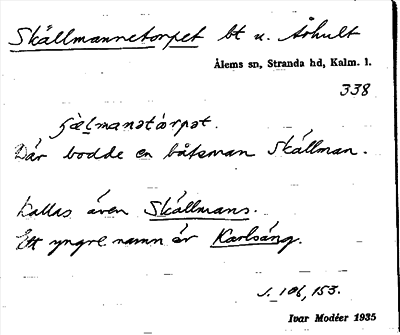 Skällmannetorpet bt u. Århult
Ålems sn, Stranda hd, Kalm. l.
338
Där bodde en båtsman Skällman.
Kallas även Skällmans.
Ett yngre namn är Karlsäng.
J. 106, 153.
Ivar Modéer 1935